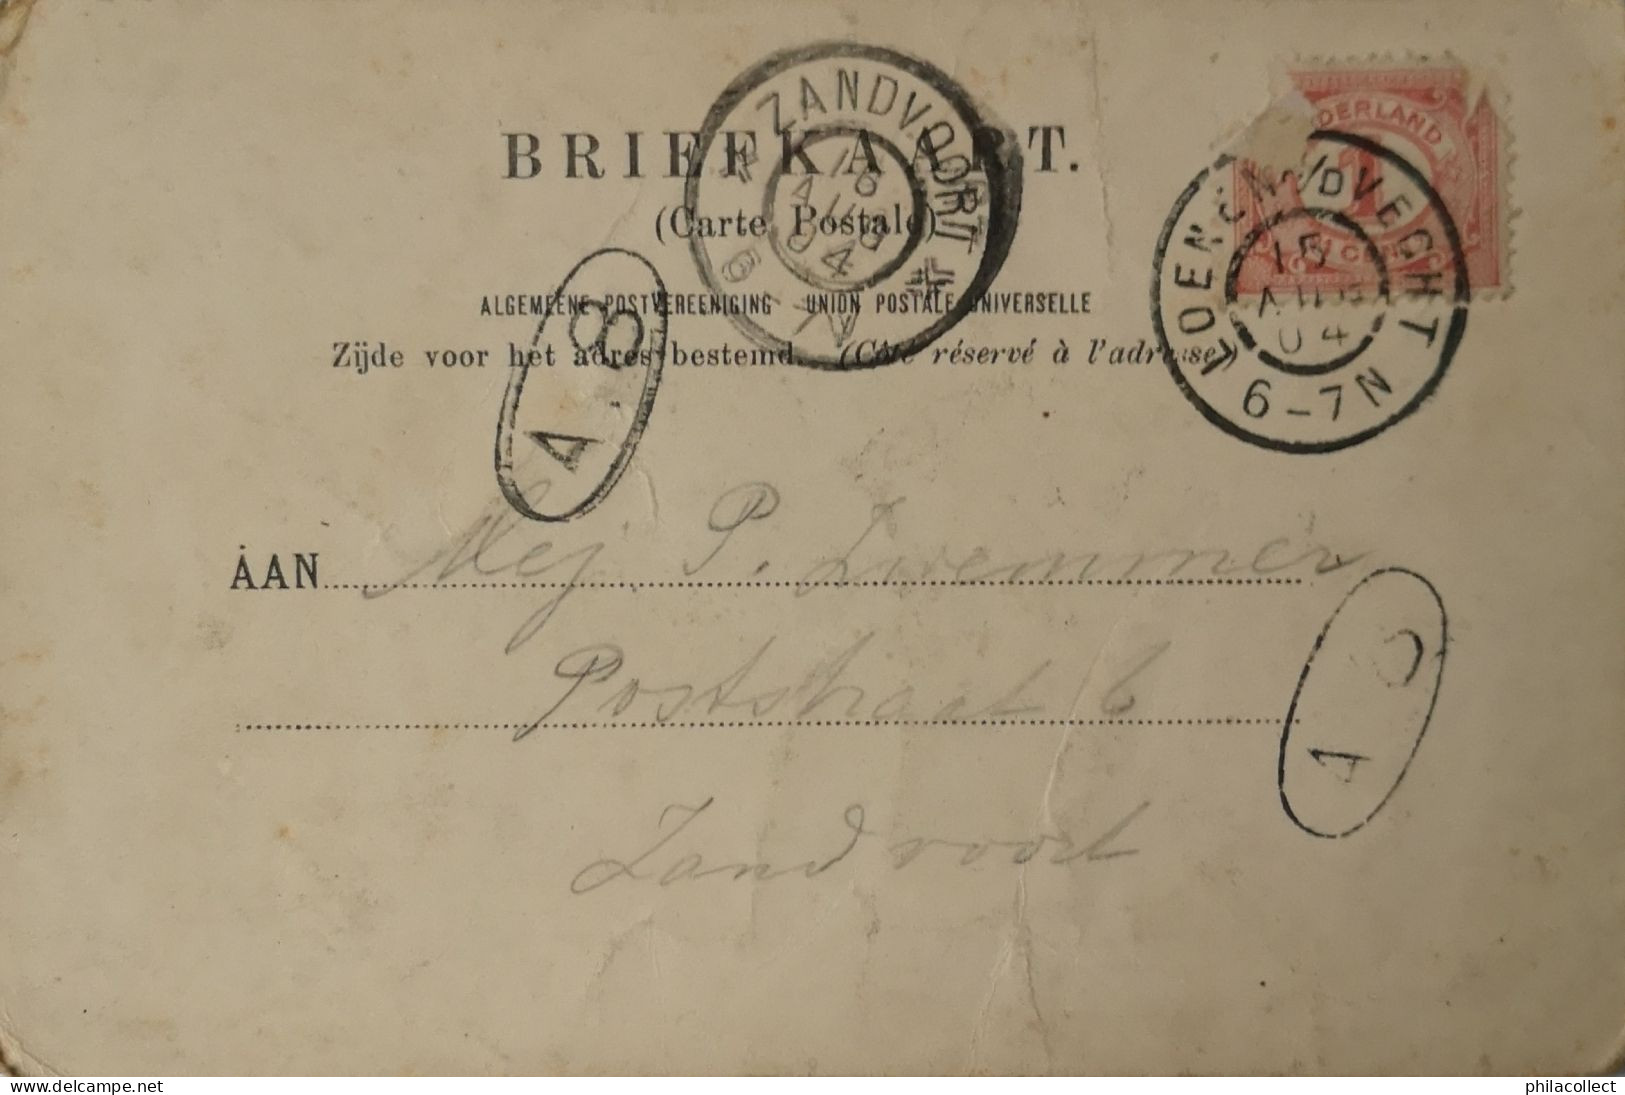 BRIEFKAART.
(Carte Postale)
ALGEMEENE POSTVEREENIGING UNION POSTALE UNIVERSELLE
Zijde voor het adres bestemd. (Côté réservé à l'adresse)
ZANDVOORT
16
AUG
04
6
N
NEDERLAND
1
CENT
15
AUG
04
6-7N
A.B
AAN Mej. P. Zwemmer
Poststraat 6
Zandvoort
1 C
delcampe.net
philacollect